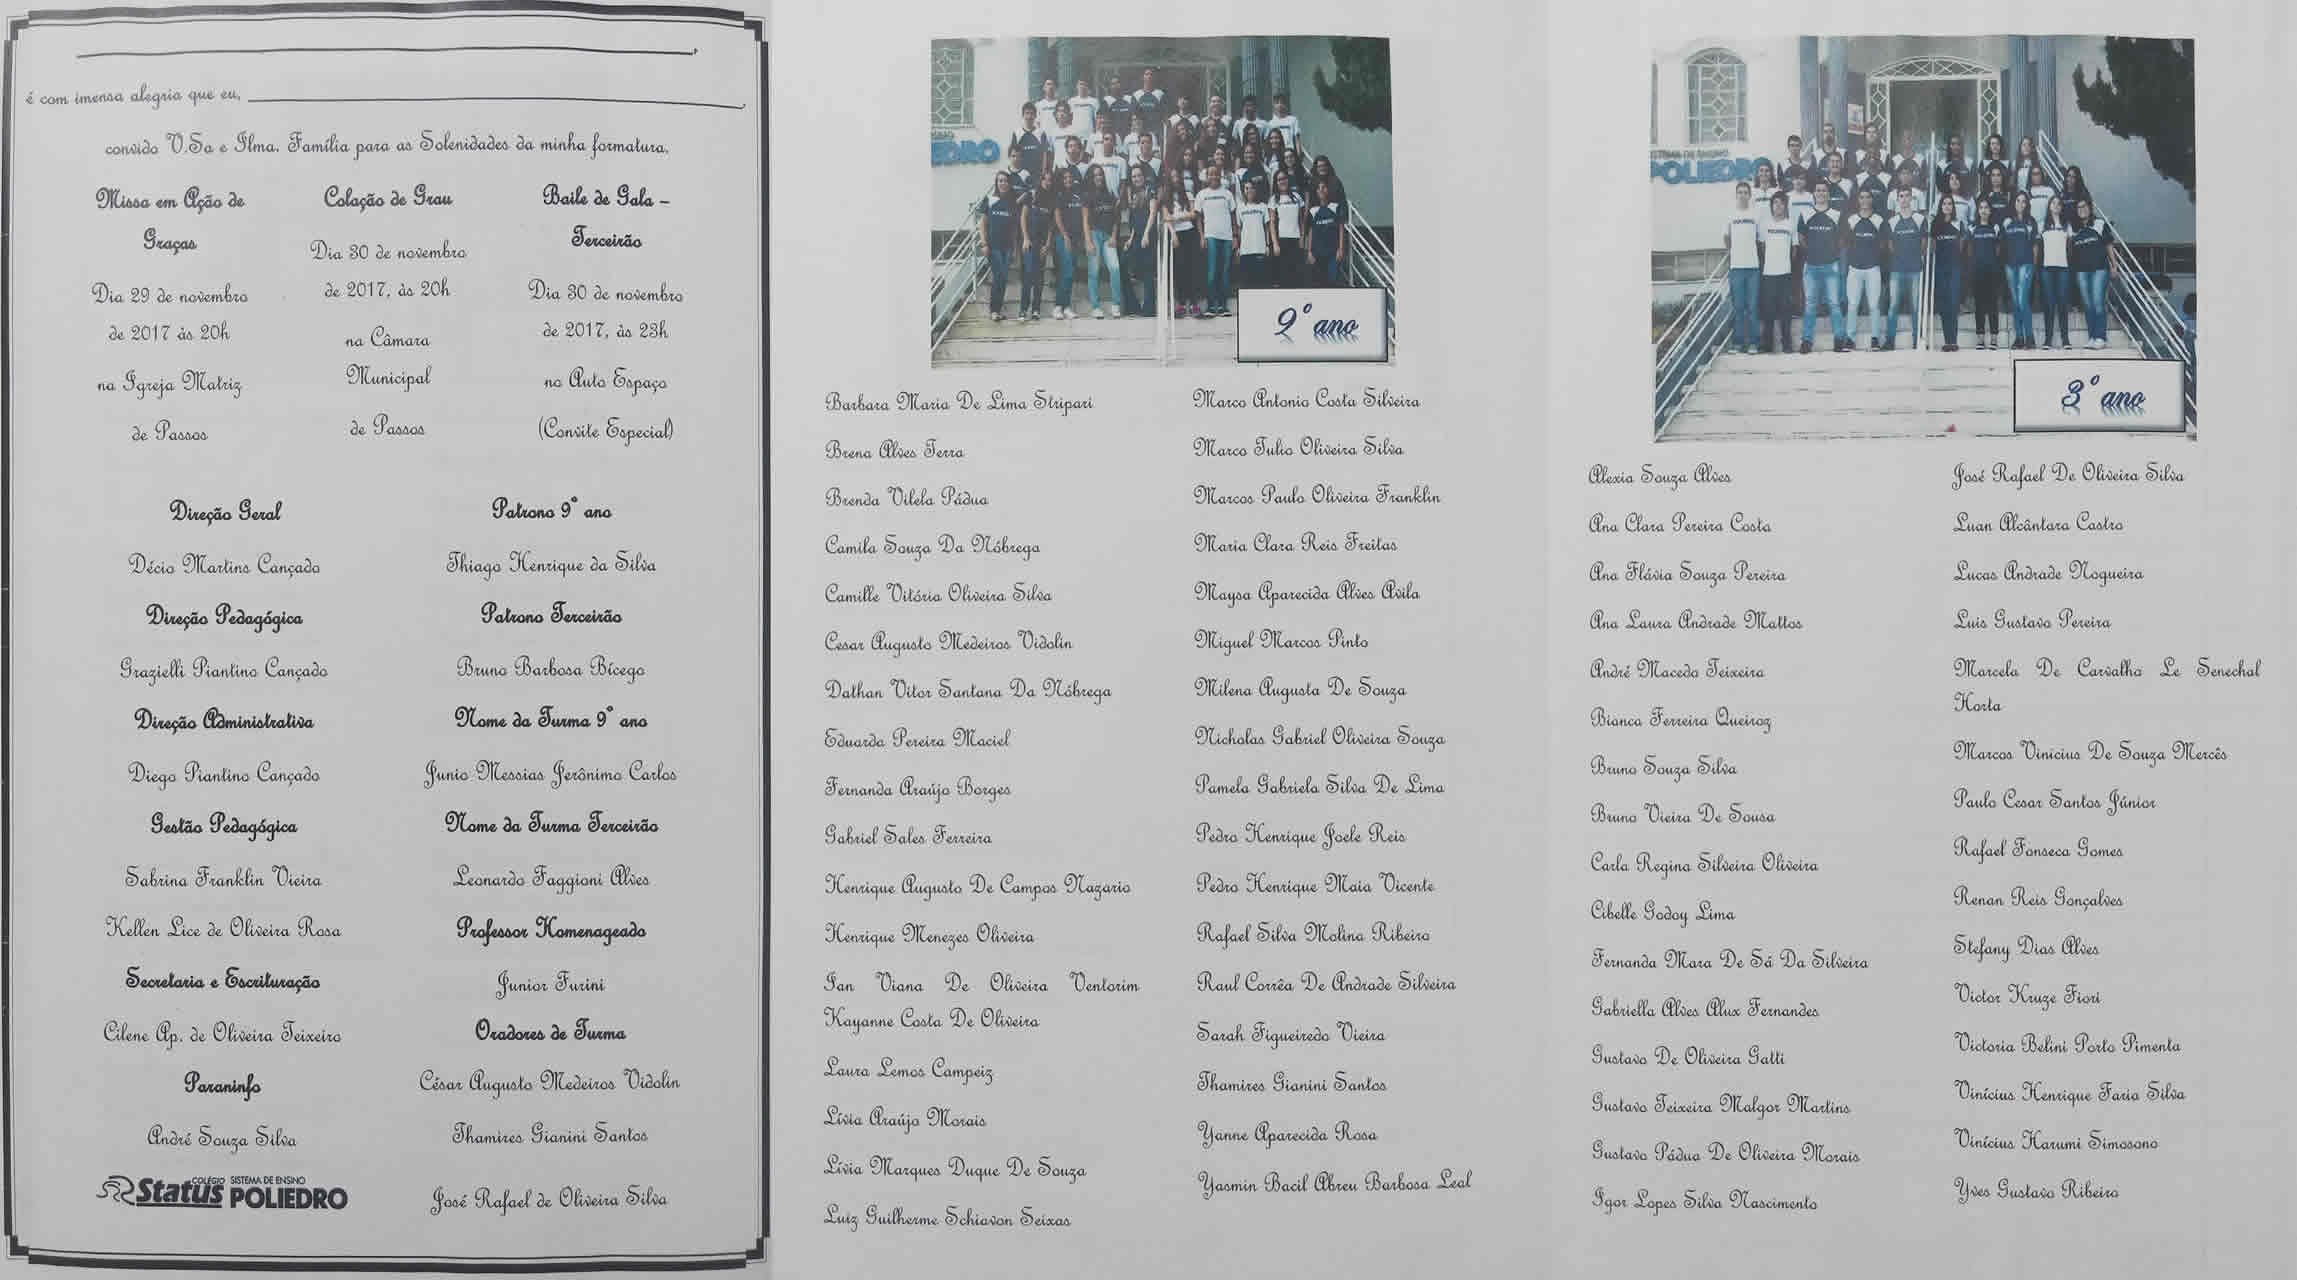 é com imensa alegria que eu,
convido V.Sa e Ilma. Família para as Solenidades da minha formatura.
Missa em Ação de
Graças
Dia 29 de novembro
de 2017 às 20h
na Igreja Matriz
de Passos
Colação de Grau
Dia 30 de novembro
de 2017, às 20h
na Câmara
Municipal
de Passos
Baile de Gala –
Terceirão
Dia 30 de novembro
de 2017, às 23h
no Auto Espaço
(Convite Especial)
Direção Geral
Décio Martins Cançado
Direção Pedagógica
Grazielli Piantino Cançado
Direção Administrativa
Diego Piantino Cançado
Gestão Pedagógica
Sabrina Franklin Vieira
Kellen Lice de Oliveira Rosa
Secretaria e Escrituração
Cilene Ap. de Oliveira Teixeiro
Paraninfo
André Souza Silva
COLÉGIO
Status
SISTEMA DE ENSINO
POLIEDRO
Patrono 9º ano
Thiago Henrique da Silva
Patrono Terceirão
Bruno Barbosa Bícego
Nome da Turma 9º ano
Junio Messias Jerônimo Carlos
Nome da Turma Terceirão
Leonardo Faggioni Alves
Professor Homenageado
Junior Furini
Oradores de Turma
César Augusto Medeiros Vidolin
Thamires Gianini Santos
José Rafael de Oliveira Silva
EDRO
9º ano
Barbara Maria De Lima Stripari
Brena Alves Terra
Brenda Vilela Pádua
Camila Souza Da Nóbrega
Camille Vitória Oliveira Silva
Cesar Augusto Medeiros Vidolin
Dathan Vitor Santana Da Nóbrega
Eduarda Pereira Maciel
Fernanda Araújo Borges
Gabriel Sales Ferreira
Henrique Augusto De Campos Nazario
Henrique Menezes Oliveira
Ian Viana De Oliveira Ventorim
Kayanne Costa De Oliveira
Laura Lemos Campeiz
Lívia Araújo Morais
Lívia Marques Duque De Souza
Luiz Guilherme Schiavon Seixas
Marco Antonio Costa Silveira
Marco Tulio Oliveira Silva
Marcos Paulo Oliveira Franklin
Maria Clara Reis Freitas
Maysa Aparecida Alves Avila
Miguel Marcos Pinto
Milena Augusta De Souza
Nicholas Gabriel Oliveira Souza
Pamela Gabriela Silva De Lima
Pedro Henrique Joele Reis
Pedro Henrique Maia Vicente
Rafael Silva Molina Ribeiro
Raul Corrêa De Andrade Silveira
Sarah Figueiredo Vieira
Thamires Gianini Santos
Yanne Aparecida Rosa
Yasmin Bacil Abreu Barbosa Leal
STEMA DE ENSINO
POLIEDRO
3º ano
Alexia Souza Alves
Ana Clara Pereira Costa
Ana Flávia Souza Pereira
Ana Laura Andrade Mattos
André Macedo Teixeira
Bianca Ferreira Queiroz
Bruno Souza Silva
Bruno Vieira De Sousa
Carla Regina Silveira Oliveira
Cibelle Godoy Lima
Fernanda Mara De Sá Da Silveira
Gabriella Alves Alux Fernandes
Gustavo De Oliveira Gatti
Gustavo Teixeira Malgor Martins
Gustavo Pádua De Oliveira Morais
Igor Lopes Silva Nascimento
José Rafael De Oliveira Silva
Luan Alcântara Castro
Lucas Andrade Nogueira
Luis Gustavo Pereira
Marcela De Carvalha Le Senechal
Horta
Marcos Vinicius De Souza Mercês
Paulo Cesar Santos Júnior
Rafael Fonseca Gomes
Renan Reis Gonçalves
Stefany Dias Alves
Victor Kruze Fiori
Victoria Belini Porto Pimenta
Vinícius Henrique Faria Silva
Vinícius Harumi Simosono
Yves Gustavo Ribeiro